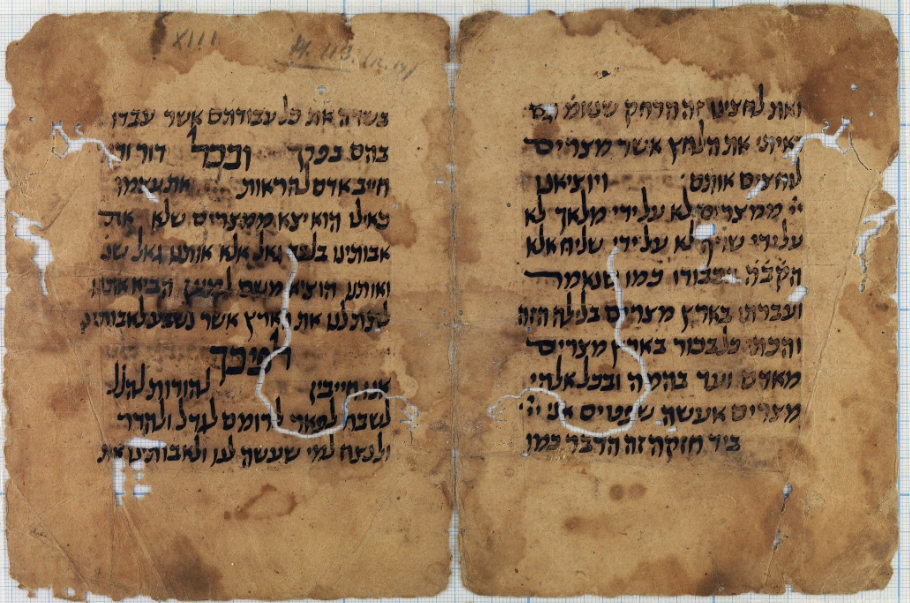 ואת לחצינו זה הדחק שנומ׳ גם
ראיתי את הלחץ אשר מצרים
לוחצים אותם ויוציאנו
ייי ממצרים לא על ידי מלאך לא
על ידי שרף לא על ידי שליח אלא
הק׳ב׳ה בכבודו כמו שנאמר
ועברתי בארץ מצרים בלילה הזה
והכתי כל בכור בארץ מצרים
מאדם ועד בהמה ובכל אלהי
מצרים אעשה שפטים אני ייי
ביד חזקה זה הדבר כמו
XIII
בשדה את כל עבודתם אשר עבדו
בהם בפרך ובכל דור ודור
חייב אדם להראות את עצמו
כאילו הוא יצא ממצרים שלא את
אבותינו בלבד גאל אלא אותנו גאל שנ׳
ואותנו הוציא משם למען הביא אתנו
לתת לנו את הארץ אשר נשבע לאבותינו
לפיכך
אנו חייבין להודות להלל
לשבח לפאר לרומם לגדל ולהדר
ולנצח למי שעשה לנו ולאבותינו את